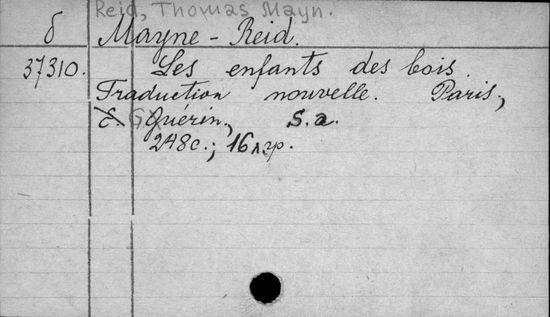 Reid, Thomas Mayn.
б Mayne-Reid.
37310. Les enfants des bois.
Traduction nouvelle. Paris,
Guérin., S.a.
248c.; 16 л. гр.